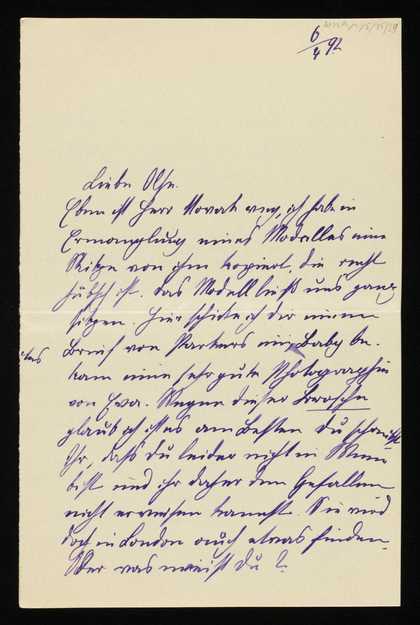 6/4 92
Liebe Olse.
Eben ist Herr Novak weg, ich habe in
Ermanglung eines Modelles eine
Skitze von ihm kopiert, die recht
hübsch ist. Das Modell ließ uns ganz
sitzen. Hier schicke ich dir einen
Brief von Parkers mein Baby be-
kam eine sehr gute Photographie
von Ewa. Wegen dieser Brosche
glaub ich es am besten Du schreibst
Ihr, daß du leider nicht in Wien
bist und ihr daher den Gefallen
nicht erweisen kannst. Sie wird
doch in London auch etwas finden.
Oder was meinst Du?